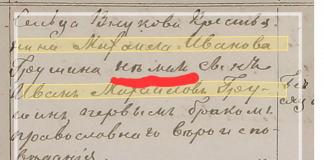 сельца Внукова крестья
нина Михаила Иванова
Грушина сынъ
Иванъ Михаиловъ Гру-
шинъ первымъ бракомъ
православнаго вероиспо-
веданія